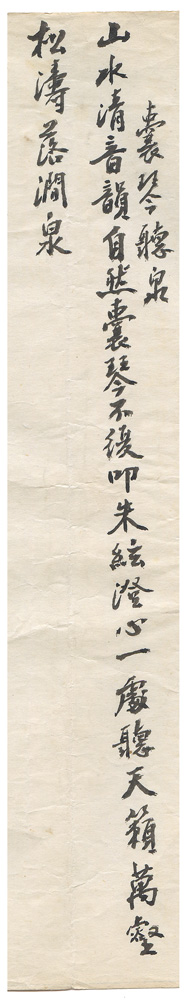 囊琴聽泉
山水清音韻自然囊琴不復叩朱絃澄心一處聽天籟萬壑
松濤落澗泉